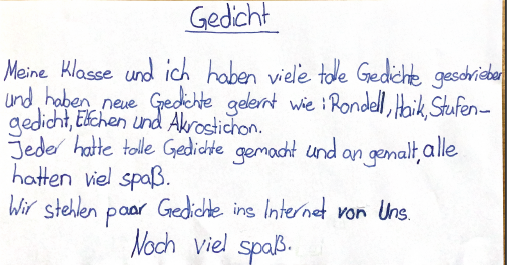 Gedicht
Meine Klasse und ich haben viele tolle Gedichte geschrieben
und haben neue Gedichte gelernt wie: Rondell, Haik, Stufen-
gedicht, Elfchen und Akrostichon.
Jeder hatte tolle Gedichte gemacht und an gemalt, alle
hatten viel spaß.
Wir stehlen paar Gedichte ins Internet von Uns.
Noch viel spaß.